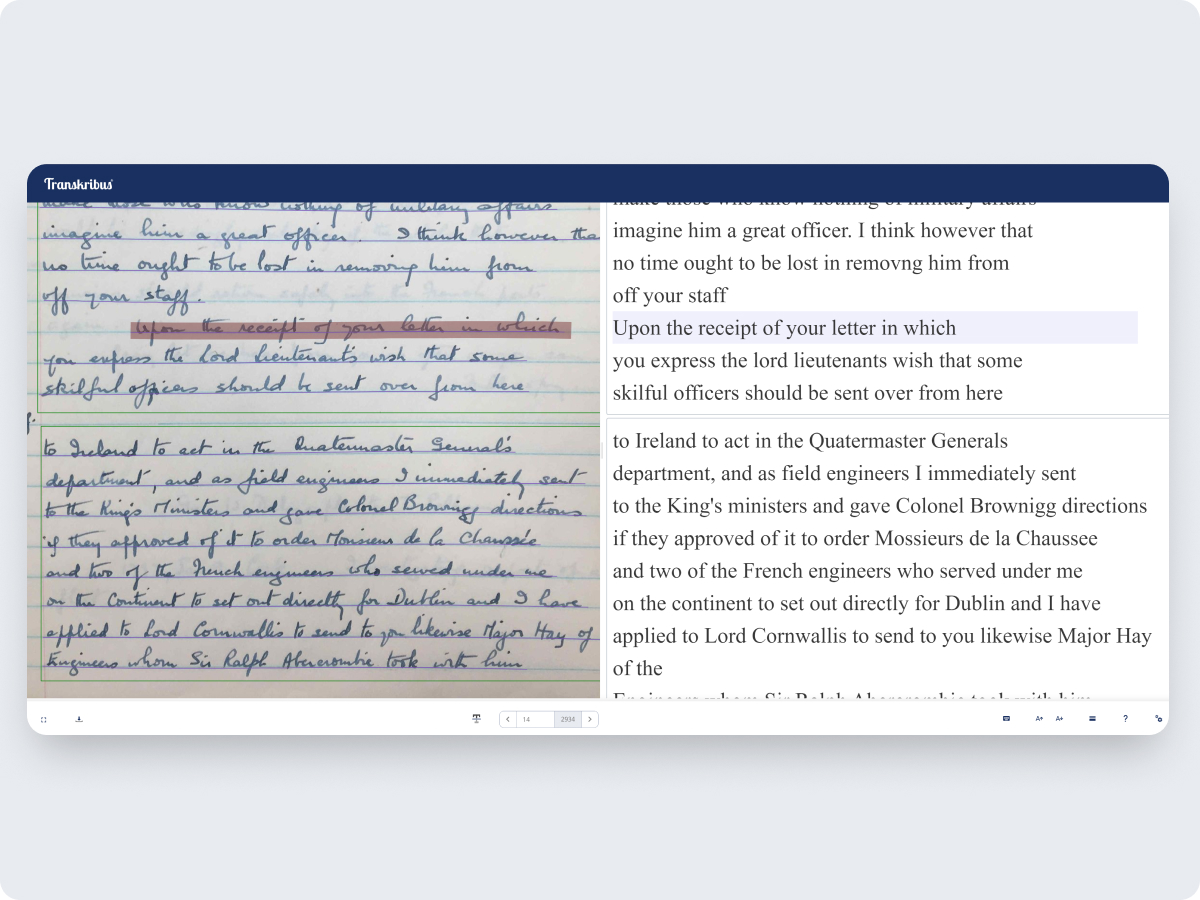 Transkribus
make those who know nothing of military affairs
imagine him a great officer. I think however tha
no time ought to be lost in removing him from
off your staff.
Upon the receipt of your letter in which
you express the Lord Lieutenant's wish that some
skilful officers should be sent over from here
to Ireland to act in the Quatermaster General's
department, and as field engineers I immediately sent
to the King's Ministers and gave Colonel Brownigg directions
if they approved of it to order Monsieur de la Chaussée
and two of the French engineers who served under me
on the Continent to set out directly for Dublin and I have
applied to Lord Cornwallis to send to you likewise Major Hay of
Engineers whom Sir Ralph Abercrombie took with him
make those who know nothing of military affairs
imagine him a great officer. I think however that
no time ought to be lost in removng him from
off your staff
Upon the receipt of your letter in which
you express the lord lieutenants wish that some
skilful officers should be sent over from here
to Ireland to act in the Quatermaster Generals
department, and as field engineers I immediately sent
to the King's ministers and gave Colonel Brownigg directions
if they approved of it to order Mossieurs de la Chaussee
and two of the French engineers who served under me
on the continent to set out directly for Dublin and I have
applied to Lord Cornwallis to send to you likewise Major Hay
of the
Engineers whom Sir Ralph Abercrombie took with him
14 2934
A+ A+ ?